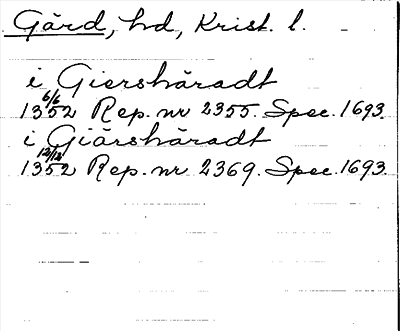 Gärd, hd, Krist. l.
i Giershäradt
1352 6/6 Rep. nr 2355. Spec. 1693.
i Giärshäradt
1352 12/12 Rep. nr 2369. Spec. 1693.